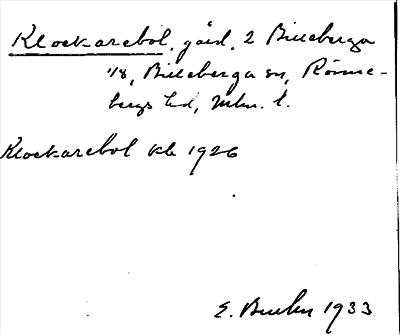 Klockarebol, gård, 2 Billeberga
1/8, Billeberga sn, Rönne-
bergs hd, Mlm. l.
Klockarebol kb 1926
E. 1933